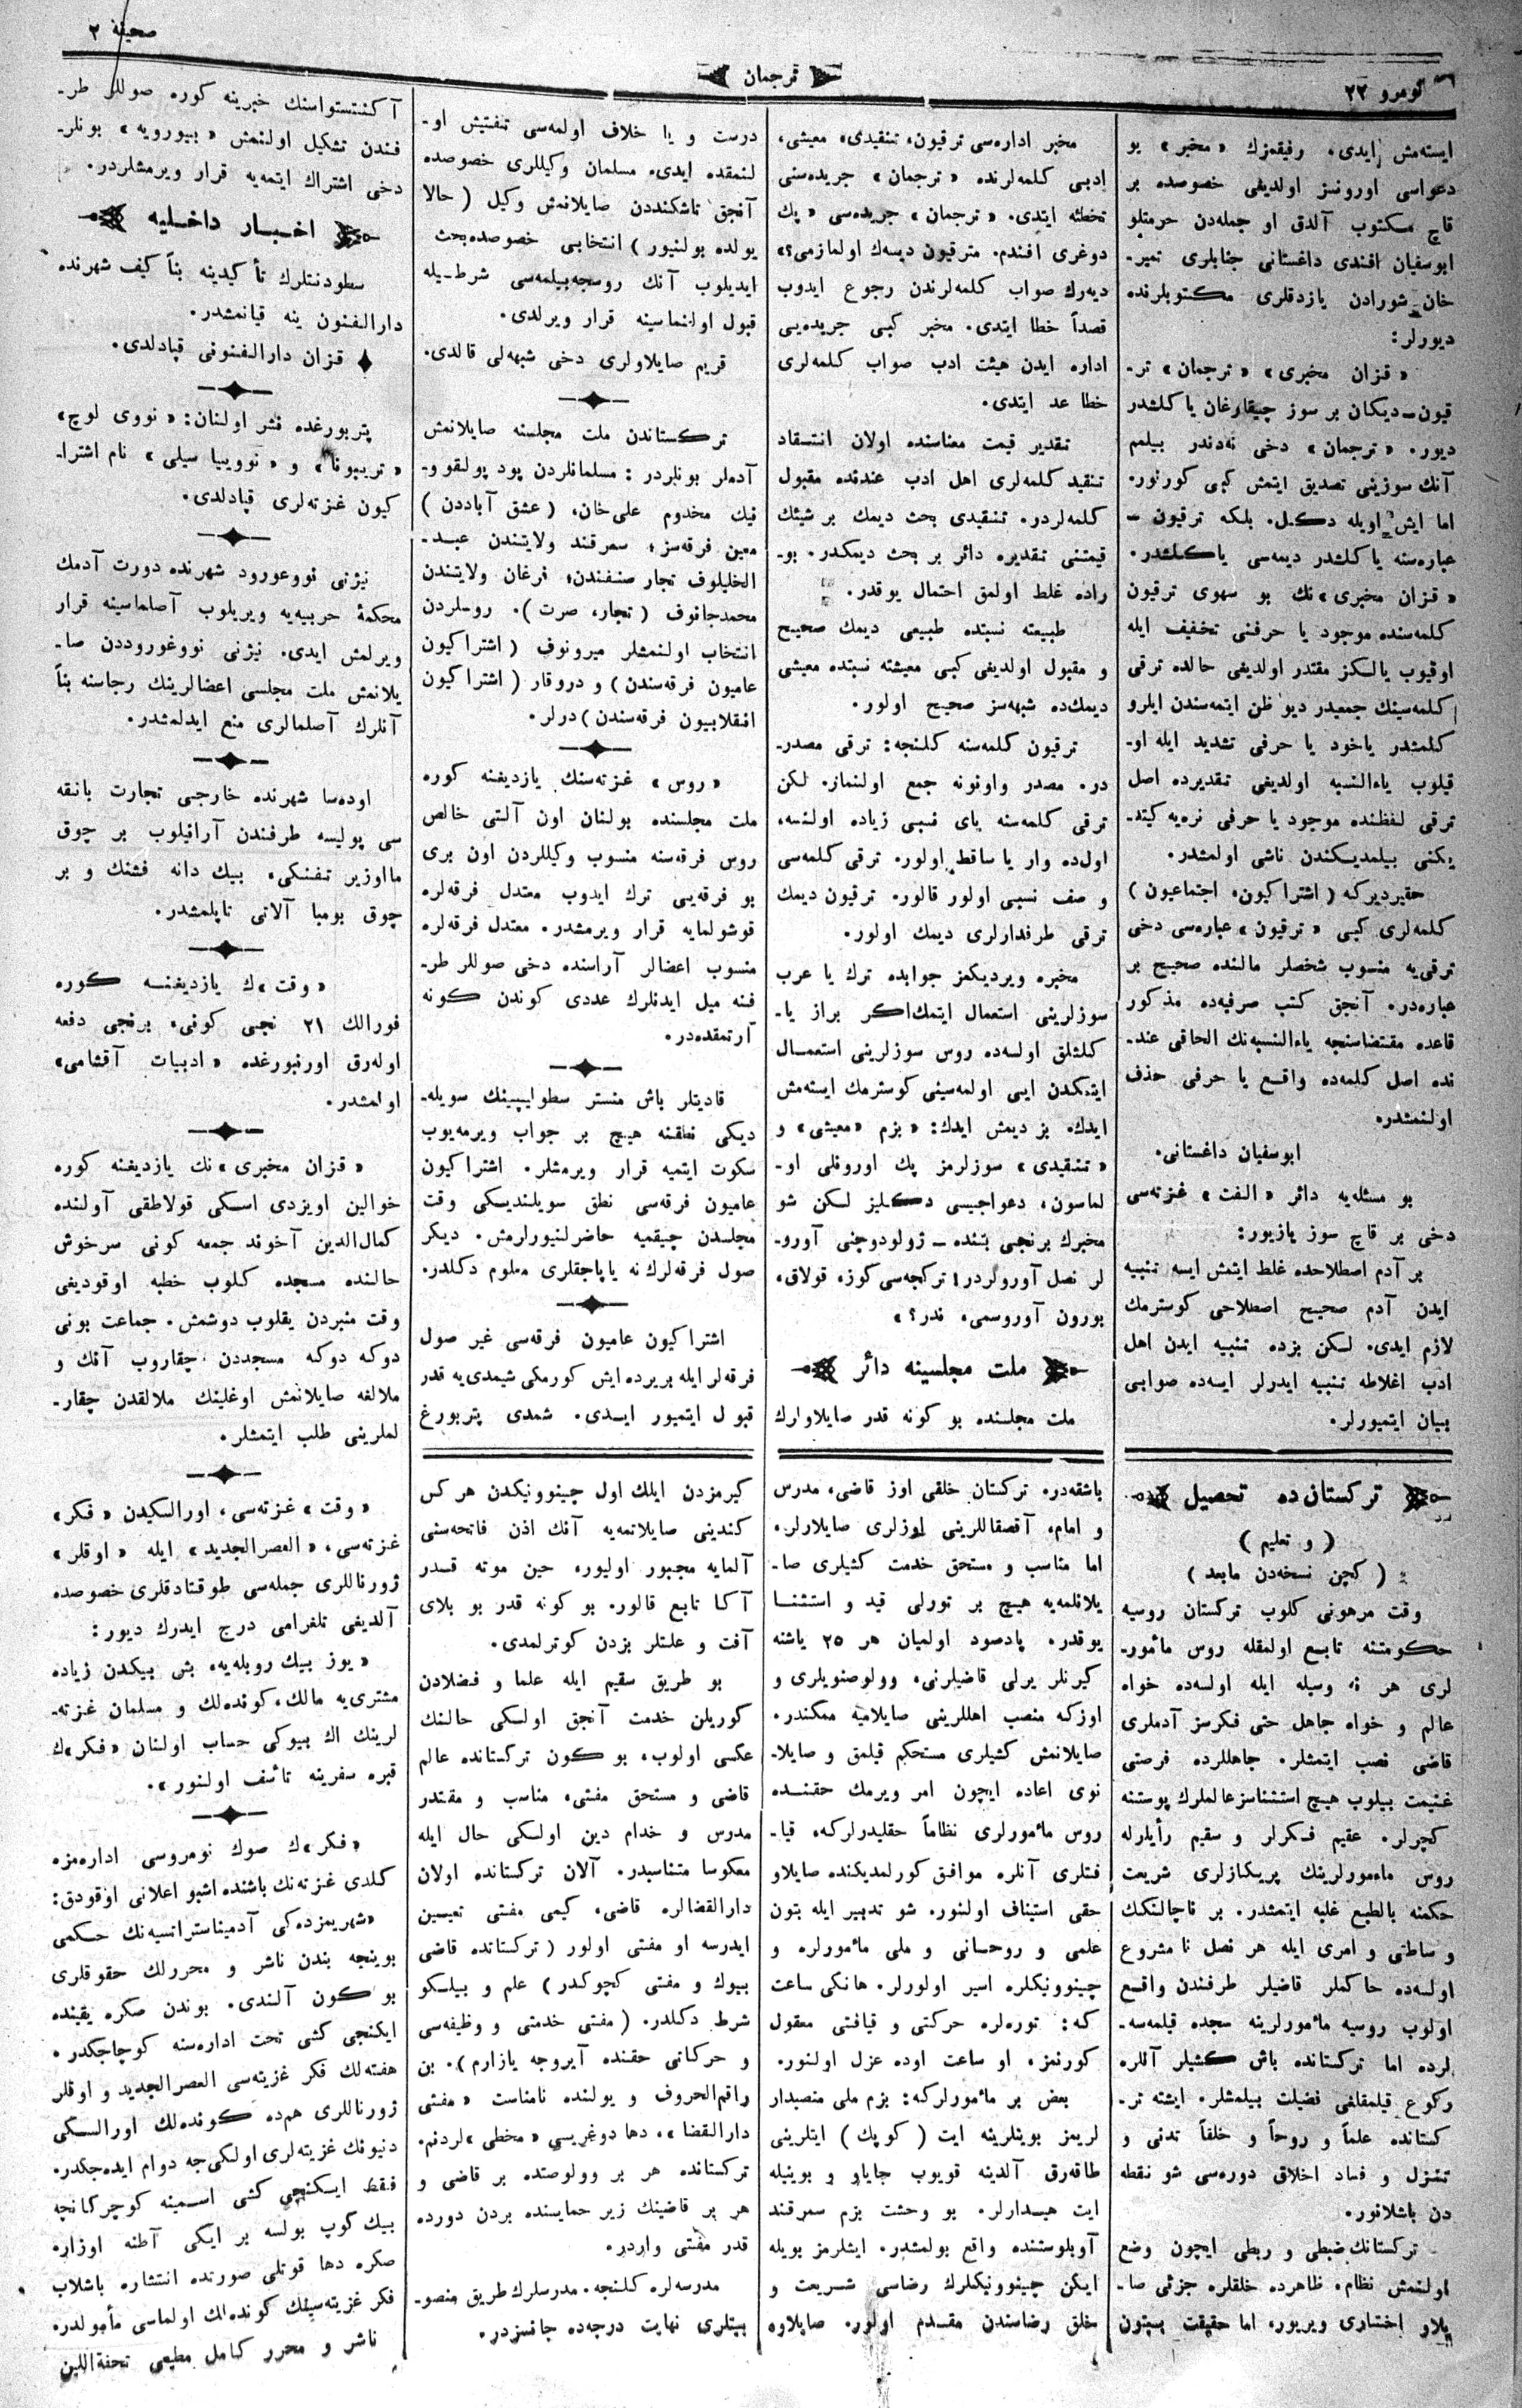 نومرو ٢٢
ترجمان
صحيفه ٢
ايسته‌مش ايدى. رفيقمزك «مخبر» بو
دعواسى اورونسز اولديغى خصوصده بر
قاچ مكتوب آلدق او جمله‌دن حرمتلو
ابوسفيان افندى داغستانى جنابلرى تمير-
خان شورادن يازدقلرى مكتوبلرنده
ديورلر:
«قزان مخبرى» «ترجمان» تر-
قيون-ديكان بر سوز چيقارغان ياكلشدر
ديور. «ترجمان» دخى نه‌دندر بيلمم
آنك سوزينى تصديق ايتمش كبى كورنور.
اما ايش اويله دكل. بلكه ترقيون -
عباره‌سنه ياكلشدر ديمه‌سى ياكلشدر.
«قزان مخبرى»نك بو سهوى ترقيون
كلمه‌سنده موجود يا حرفنى تخفيف ايله
اوقيوب يالكز مقتدر اولديغى حالده ترقى
كلمه‌سينك جمعيدر ديو ظن ايتمه‌سندن ايلرو
كلمشدر ياخود يا حرفى تشديد ايله او-
قيلوب ياءالنسبه اولديغى تقديرده اصل
ترقى لفظنده موجود يا حرفى نره‌يه كيتد-
يكنى بيلمديكندن ناشى اولمشدر.
حقير ديركه (اشتراكيون، اجتماعيون)
كلمه‌لرى كبى «ترقيون» عباره‌سى دخى
ترقى‌يه منسوب شخصلر مالنده صحيح بر
عباره‌در. آنجق كتب صرفيه‌ده مذكور
قاعده مقتضاسنجه ياءالنسبه‌نك الحاقى عند-
نده اصل كلمه‌ده واقع يا حرفى حذف
اولنمشدر.
ابوسفيان داغستانى.
بو مسئله‌يه دائر «الفت» غزته‌سى
دخى بر قاچ سوز يازيور:
بر آدم اصطلاحده غلط ايتمش ايسه تنبيه
ايدن آدم صحيح اصطلاحى كوسترمك
لازم ايدى. لكن بزده تنبيه ايدن اهل
ادب اغلاطه تنبيه ايدرلر ايسه‌ده صوابى
بيان ايتميورلر.
مخبر اداره‌سى ترقيون، تنقيدى، معيشى،
ادبى كلمه‌لرنده «ترجمان» جريده‌سنى
تخطئه ايتدى. «ترجمان» جريده‌سى «پك
دوغرى افندم. مترقيون ديسه‌ك اولمازمى؟»
ديه‌رك صواب كلمه‌لرندن رجوع ايدوب
قصداً خطا ايتدى. مخبر كبى جريده‌يى
اداره ايدن هيئت ادب صواب كلمه‌لرى
خطا عد ايتدى.
تقدير قيمت معناسنده اولان انتقاد
تنقيد كلمه‌لرى اهل ادب عندنده مقبول
كلمه‌لردر. تنقيدى بحث ديمك بر شيئك
قيمتنى تقديره دائر بر بحث ديمكدر. بو-
راده غلط اولمق احتمال يوقدر.
طبيعته نسبتده طبيعى ديمك صحيح
و مقبول اولديغى كبى معيشته نسبتده معيشى
ديمك‌ده شبهه‌سز صحيح اولور.
ترقيون كلمه‌سنه كلنجه: ترقى مصدر-
در. مصدر واونونه جمع اولنماز. لكن
ترقى كلمه‌سنه ياى نسبى زياده اولنسه،
اول‌ده وار يا ساقط اولور. ترقى كلمه‌سى
وصف نسبى اولور قالور. ترقيون ديمك
ترقى طرفدارلرى ديمك اولور.
مخبره ويرديكمز جوابده ترك يا عرب
سوزلرينى استعمال ايتمك‌اكر براز يا-
كلشلق اولسه‌ده روس سوزلرينى استعمال
ايتمكدن ايى اولمه‌سينى كوسترمك ايسته‌مش
ايدك. بز ديمش ايدك: «بزم «معيشى» و
«تنقيدى» سوزلرمز پك اورونلى او-
لماسون، دعواجيسى دكليز لكن شو
مخبرك برنجى بتنده - ژولودوچنى آورو-
لر نصل آورولردر! تركجه‌سى كوز، قولاق،
بورون آوروسمى، ندر؟»
ملت مجلسينه دائر
ملت مجلسنده بو كونه قدر صايلاولرك
درست و يا خلاف اولمه‌سى تفتيش او-
لنمقده ايدى. مسلمان وكيللرى خصوصده
آنجق تاشكنددن صايلانمش وكيل (حالا
يولده بولنيور) انتخابى خصوصده‌بحث
ايديلوب آنك روسجه‌بيلمه‌سى شرط-يله
قبول اولنماسينه قرار ويرلدى.
قريم صايلاولرى دخى شبهه‌لى قالدى.
تركستاندن ملت مجلسنه صايلانمش
آدملر بونلردر: مسلمانلردن پود پولقوو-
نيك مخدوم على‌خان، (عشق آباددن)
معين فرقه‌سز؛ سمرقند ولايتندن عبد-
الخليلوف تجار صنفندن؛ فرغان ولايتندن
محمدجانوف (تجار، صرت). روسلردن
انتخاب اولنمشلر ميرونوف (اشتراكيون
عاميون فرقه‌سندن) و دروقار (اشتراكيون
انقلابيون فرقه‌سندن) درلر.
«روس» غزته‌سنك يازديغنه كوره
ملت مجلسنده بولنان اون آلتى خالص
روس فرقه‌سنه منسوب وكيللردن اون برى
بو فرقه‌يى ترك ايدوب معتدل فرقه‌لره
قوشولمايه قرار ويرمشدر. معتدل فرقه‌لره
منسوب اعضالر آراسنده دخى صوللر طر-
فنه ميل ايدنلرك عددى كوندن كونه
آرتمقده‌در.
قاديتلر باش منستر سطوليپينك سويله-
ديكى نطقنه هيچ بر جواب ويرمه‌يوب
سكوت ايتميه قرار ويرمشلر. اشتراكيون
عاميون فرقه‌سى نطق سويلنديكى وقت
مجلسدن چيقميه حاضرلنيورلرمش. ديكر
صول فرقه‌لرك نه ياپاجقلرى معلوم دكلدر.
اشتراكيون عاميون فرقه‌سى غير صول
فرقه‌لر ايله بريرده ايش كورمكى شيمدى‌يه قدر
قبول ايتميور ايدى. شمدى پتربورغ
آكنتستواسنك خبرينه كوره صوللر طر-
فندن تشكيل اولنمش «بيورويه» بونلر-
دخى اشتراك ايتمه‌يه قرار ويرمشلردر.
اخبار داخليه
سطودنتلرك تأكيدينه بناً كيف شهرنده
دارالفنون ينه قپانمشدر.
قزان دارالفنونى قپادلدى.
پتربورغده نشر اولنان: «نووى لوچ»
«تريبونا» و «نووييا سيلى» نام اشترا-
كيون غزته‌لرى قپادلدى.
نيژنى نووغورود شهرنده دورت آدمك
محكمهٔ حربيه‌يه ويريلوب آصلماسينه قرار
ويرلمش ايدى. نيژنى نووغوروددن صا-
يلانمش ملت مجلسى اعضالرينك رجاسنه بناً
آنلرك آصلمالرى منع ايدلمشدر.
اوده‌سا شهرنده خارجى تجارت بانقه
سى پوليسه طرفندن آراقيلوب بر چوق
مااوزير تفنكى، بيك دانه فشنك و بر
چوق بومبا آلاتى تاپلمشدر.
«وقت»ك يازديغنه كوره
فورالك ٢١ نجى كونى، برنجى دفعه
اوله‌رق اورنبورغده «ادبيات آقشامى»
اولمشدر.
«قزان مخبرى»نك يازديغنه كوره
خوالين اويزدى اسكى قولاطقى آولنده
كمال‌الدين آخوند جمعه كونى سرخوش
حالنده مسجده كلوب خطبه اوقوديغى
وقت منبردن يقلوب دوشمش. جماعت بونى
دوكه دوكه مسجددن چقاروب آنك و
ملالغه صايلانمش اوغلينك ملالقدن چقار-
لملرينى طلب ايتمشلر.
«وقت» غزته‌سى، اورالسكيدن «فكر»
غزته‌سى، «العصرالجديد» ايله «اوقلر»
ژورناللرى جمله‌سى طوقتادقلرى خصوصده
آلديغى تلغرامى درج ايدرك ديور:
«يوز بيك روبله‌يه، بش بيكدن زياده
مشترى‌يه مالك، كونده‌لك و مسلمان غزته-
لرينك اك بيوكى حساب اولنان «فكر»ك
قبره سفرينه تأسف اولنور».
«فكر»ك صوك نومروسى اداره‌مزه
كلدى غزته‌نك باشنده اشبو اعلانى اوقودق:
«شهريمزده‌كى آدميناستراتسيه‌نك حكمى
بوينجه بندن ناشر و محررلك حقوقلرى
بو كون آلندى. بوندن صكره يقينده
ايكنجى كشى تحت اداره‌سنه كوچاجكدر.
هفته‌لك فكر غزيته‌سى العصرالجديد و اوقلر
ژورناللرى هم‌ده كونده‌لك اورالسكى
دنيونك غزيته‌لرى اولكى‌جه دوام ايده‌جكدر.
فقط ايكنچى كشى اسمينه كوچركانچه
بيك كوپ بولسه بر ايكى آطنه اوزار.
صكره دها قوتلى صورتده انتشاره باشلاب
فكر غزيته‌سينك كونده‌لك اولماسى مأمولدر.
ناشر و محرر كامل مطيعى تحفةاللين
تركستان‌ده تحصيل
(و تعليم)
(كچن نسخه‌دن مابعد)
وقت مرهونى كلوب تركستان روسيه
حكومتنه تابع اولمقله روس مأمور-
لرى هر نه وسيله ايله اولسه‌ده خواه
عالم و خواه جاهل حتى فكرسز آدملرى
قاضى نصب ايتمشلر. جاهللرده فرصتى
غنيمت بيلوب هيچ استثناسز عالملرك پوستنه
كچرلر. عقيم فكرلر و سقيم رأيلرله
روس مامورلرينك پريكازلرى شريعت
حكمنه بالطبع غلبه ايتمشدر. بر ناچالنكك
وساطتى و امرى ايله هر نصل نا مشروع
اولسه‌ده حاكملر قاضيلر طرفندن واقع
اولوب روسيه مأمورلرينه سجده قيلمه‌سه-
لرده اما تركستانده باش كشيلر آنلره
ركوع قيلمقلغى فضيلت بيلمشلر. ايشته تر-
كستانده علماً و روحاً و خلقاً تدنى و
تنزل و فساد اخلاق دوره‌سى شو نقطه
دن باشلانور.
تركستانك ضبطى و ربطى ايچون وضع
اولنمش نظام، ظاهرده خلقلره جزئى صا-
يلاو اختيارى ويريور، اما حقيقت بتون
باشقه‌در. تركستان خلقى اوز قاضى، مدرس
و امام، آقصقاللرينى اوزلرى صايلارلر.
اما مناسب و مستحق خدمت كشيلرى صا-
يلانلمه‌يه هيچ بر تورلى قيد و استثنا
يوقدر. پادصود اولميان هر ٢٥ ياشنه
كيرنلر يرلى قاضيلرنى، وولوصنويلرى و
اوزكه منصب اهللرينى صايلاميه ممكندر.
صايلانمش كشيلرى مستحكم قيلمق و صايلا-
نوى اعاده ايچون امر ويرمك حقنده
روس مأمورلرى نظاماً حقليدرلركه، قيا-
فتلرى آنلره موافق كورلمديكنده صايلاو
حقى استيناف اولنور. شو تدبير ايله بتون
علمى و روحانى و ملى مأمورلره و
چينوونيكلره اسير اولورلر. هانكى ساعت
كه: توره‌لره حركتى و قيافتى معقول
كورنمز، او ساعت اوده عزل اولنور.
بعض بر مأمورلركه: بزم ملى منصبدار
لريمز بوينلرينه ايت (كوپك) ايتلرينى
طاقه‌رق آلدينه قويوب چاپاو و بوينيله
ايت هيدارلر. بو وحشت بزم سمرقند
آوبلوستنده واقع بولمشدر. ايشلرمز بويله
ايكن چينوونيكلرك رضاسى شريعت و
خلق رضاسندن مقدم اولور. صايلاوه
كيرمزدن ايلك اول چينوونيكدن هركس
كندينى صايلاتمه‌يه آنك اذن فاتحه‌سنى
آلمايه مجبور اوليور، حين موته قدر
آكا تابع قالور. بو كونه قدر بو بلاى
آفت و علتلر بزدن كوترلمدى.
بو طريق سقيم ايله علما و فضلادن
كوريلن خدمت آنجق اولسكى حالنك
عكسى اولوب، بو كون تركستانده عالم
قاضى و مستحق مفتى، مناسب و مقتدر
مدرس و خدام دين اولكى حال ايله
معكوسا متناسبدر. آلان تركستانده اولان
دارالقضالره قاضى، كيمى مفتى تعيين
ايدرسه او مفتى اولور (تركستانده قاضى
بيوك و مفتى كچوكدر) علم و بيلكو
شرط دكلدر. (مفتى خدمتى و وظيفه‌سى
و حركاتى حقنده آيروجه يازارم). بن
راقم‌الحروف و يولنده نامناست «مفتى
دارالقضا»، دها دوغريسى «مخطى»لردنم.
تركستانده هر بر وولوصتده بر قاضى و
هر بر قاضينك زير حمايسنده بردن دورده
قدر مفتى واردر.
مدرسه‌لره كلنجه. مدرسلرك طريق منصو-
بيتلرى نهايت درجه‌ده جانسزدر.